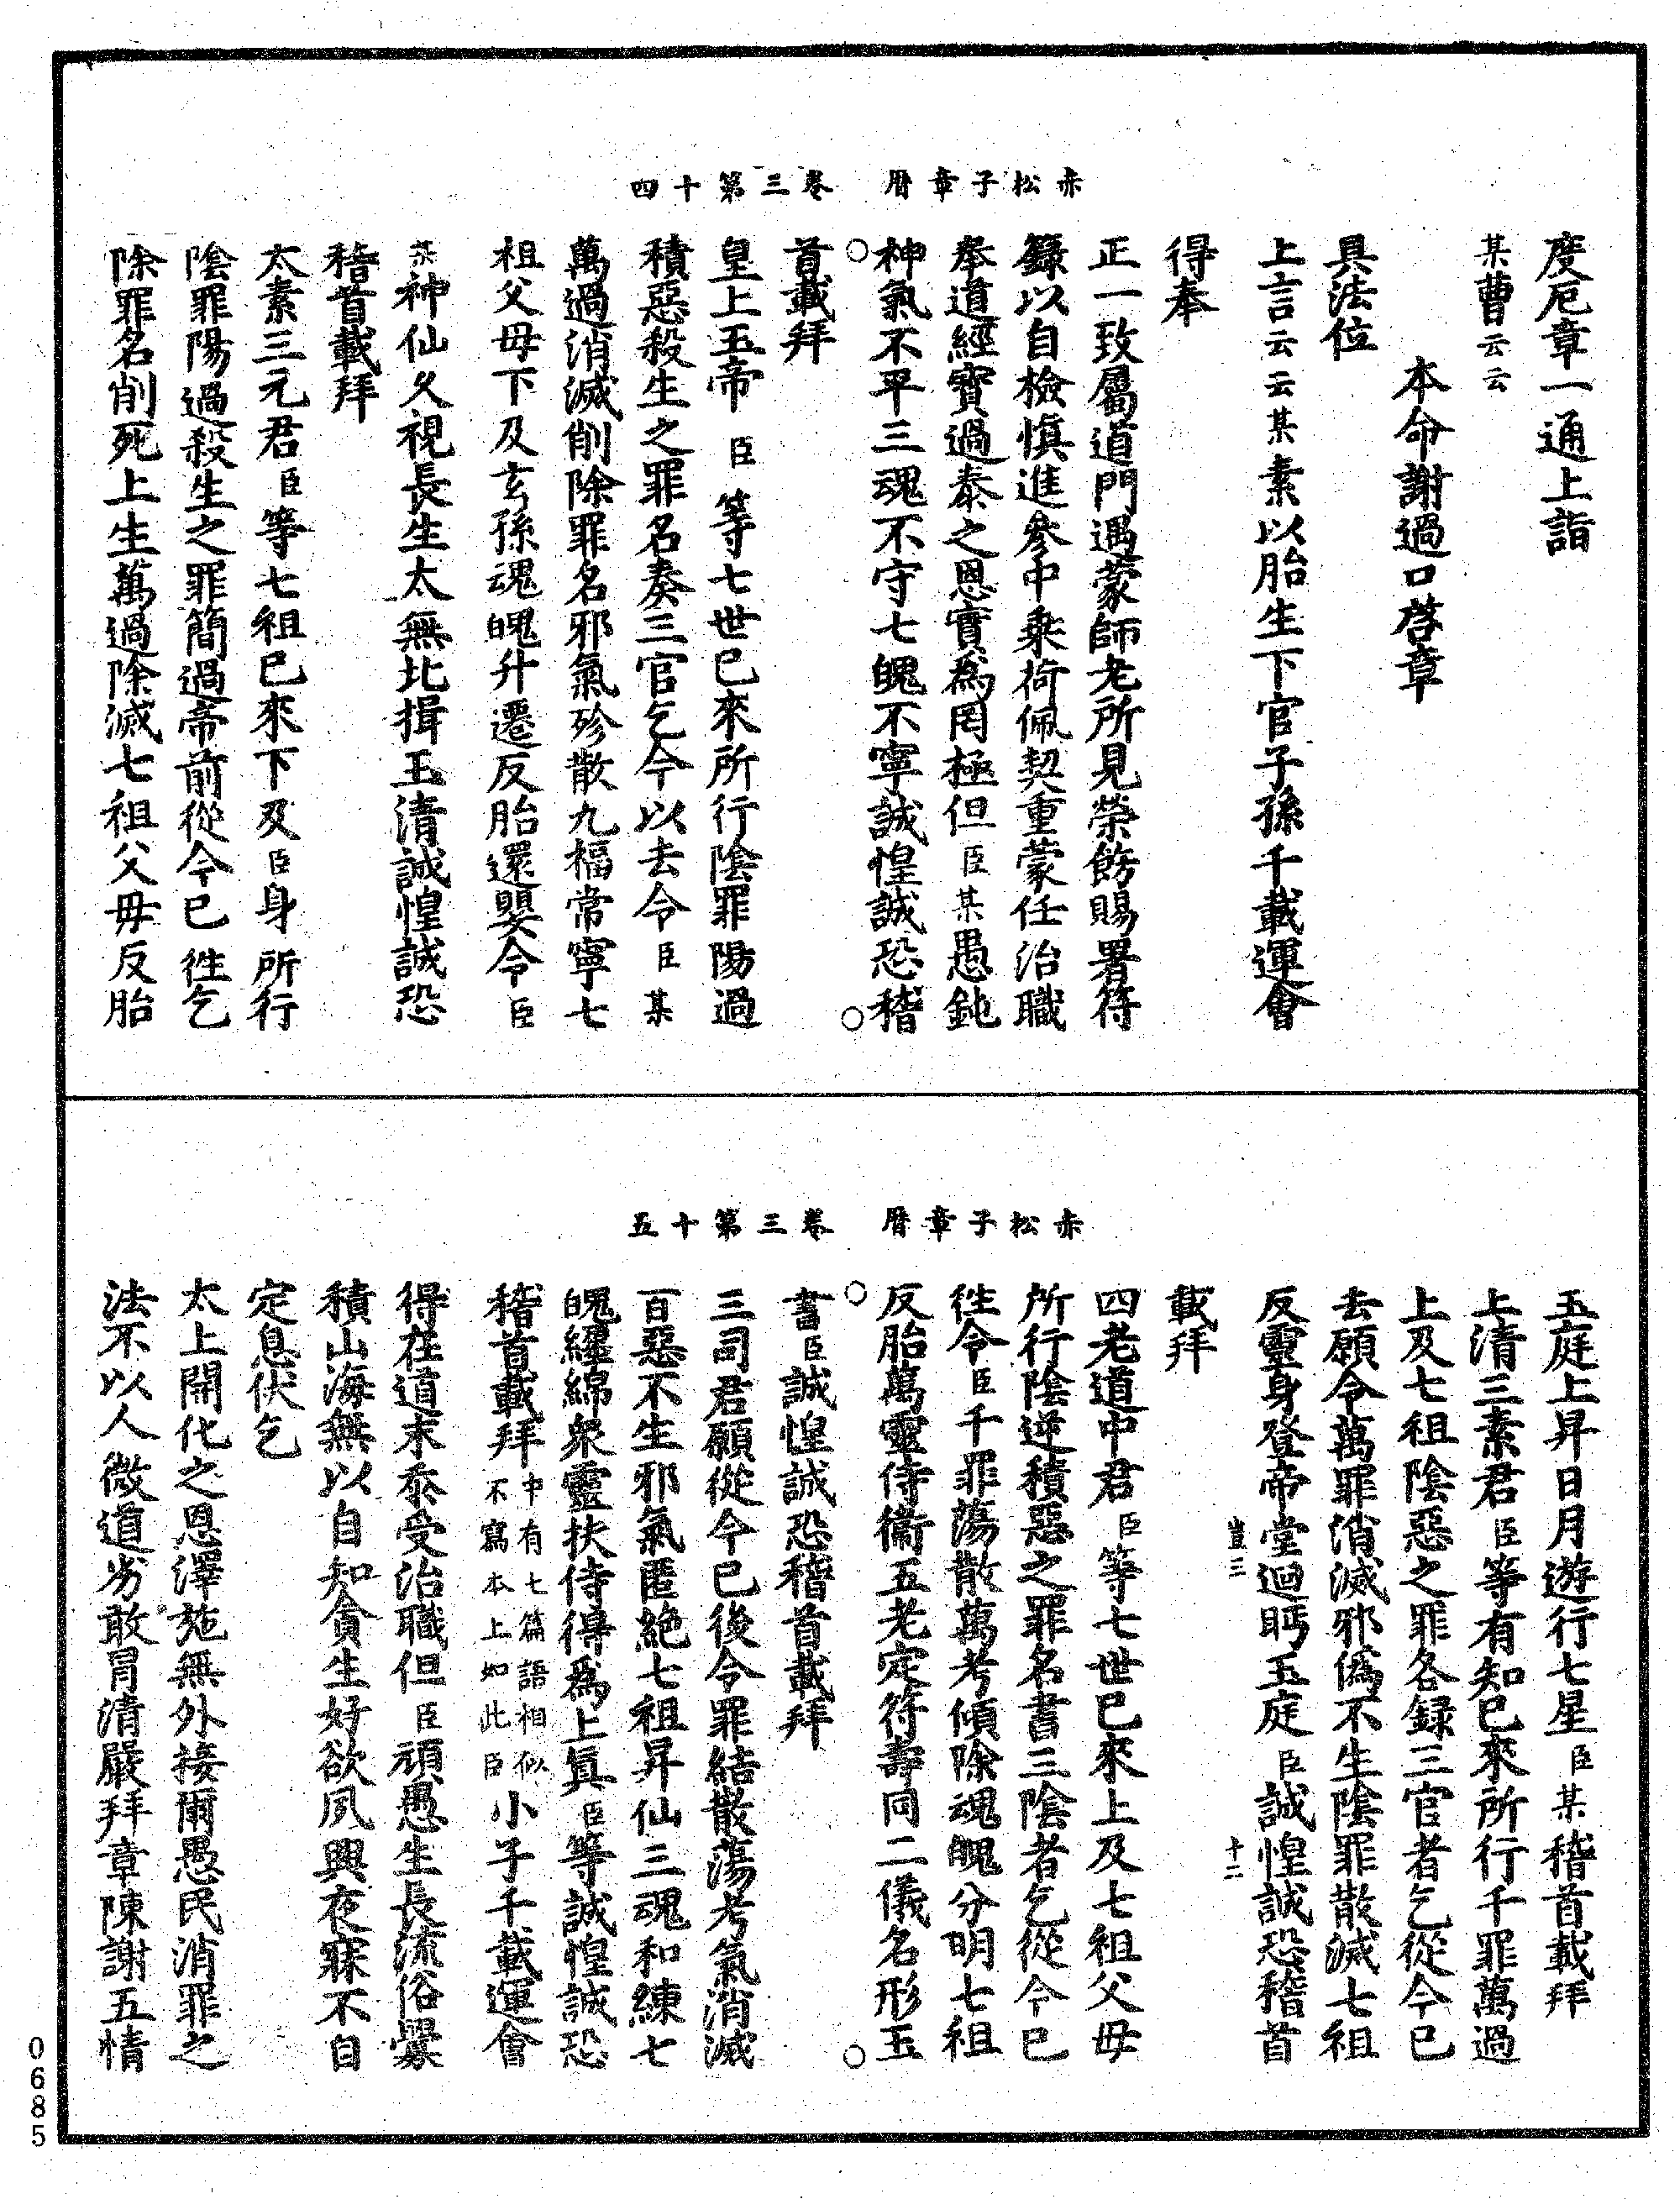 赤松子章曆　卷三第十四
度厄章一通上詣
某曹云云
本命謝過口啓章
具法位
上言云云某素以胎生下官子孫千載運會
得奉
正一致屬道門遇蒙師老所見榮飾賜署符
籙以自檢愼進參中乘荷佩契重蒙任治職
奉道經寶過泰之恩實爲罔極但臣某愚鈍
神氣不平三魂不守七魄不寧誠惶誠恐稽
首載拜
皇上玉帝臣等七世已來所行陰罪陽過
積惡殺生之罪名奏三官乞今以去令臣某
萬過消滅削除罪名邪氣殄散九福常寧七
祖父母下及玄孫魂魄升遷反胎還嬰令臣
某神仙久視長生太無北揖玉清誠惶誠恐
稽首載拜
太素三元君臣等七祖已來下及臣身所行
陰罪陽過殺生之罪簡過帝前從今已往乞
除罪名削死上生萬過除滅七祖父母反胎
赤松子章曆　卷三第十五
玉庭上昇日月遊行七星臣某稽首載拜
上清三素君臣等有知已來所行千罪萬過
上及七祖陰惡之罪各録三官者乞從今已
去願令萬罪消滅邪僞不生陰罪散滅七祖
豈三　十二
反靈身登帝堂迴眄玉庭臣誠惶誠恐稽首
載拜
四老道中君臣等七世已來上及七祖父母
所行陰逆積惡之罪名書三陰者乞從今已
往令臣千罪蕩散萬考傾除魂魄分明七祖
反胎萬靈侍衞五老定符壽同二儀名形玉
書臣誠惶誠恐稽首載拜
三司君願從今已後令罪結散蕩考氣消滅
百惡不生邪氣匿絶七祖昇仙三魂和練七
魄纏綿衆靈扶侍得爲上眞臣等誠惶誠恐
稽首載拜中有七篇語相似不寫本上如此臣小子千載運會
得在道末忝受治職但臣頑愚生長流俗釁
積山海無以自知貪生好欲夙興夜寐不自
定息伏乞
太上開化之恩澤施無外接爾愚民消罪之
法不以人微道劣敢冐清嚴拜章陳謝五情
0685